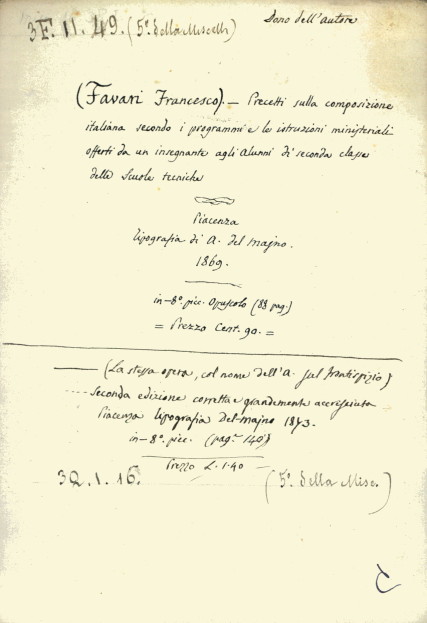 Dono dell'autore
3F. 11. 49. (5º. della Miscell.)
(Favari Francesco). — Precetti sulla composizione
italiana secondo i programmi e le istruzioni ministeriali
offerti da un insegnante agli Alunni di seconda classe
delle Scuole tecniche
Piacenza
tipografia di A. del Majno.
1869.
in-8º. picc. Opuscolo (88 pag.)
= Prezzo Cent. 90. =
— (La stessa opera, col nome dell'A. sul frontispizio)
Seconda edizione corretta e grandemente accresciuta
Piacenza tipografia Del-majno 1873.
in-8º. picc. (pag.ⁿ 140)
Prezzo L. 1.40 —
3Q. 1. 16. (5º. della Misc.)